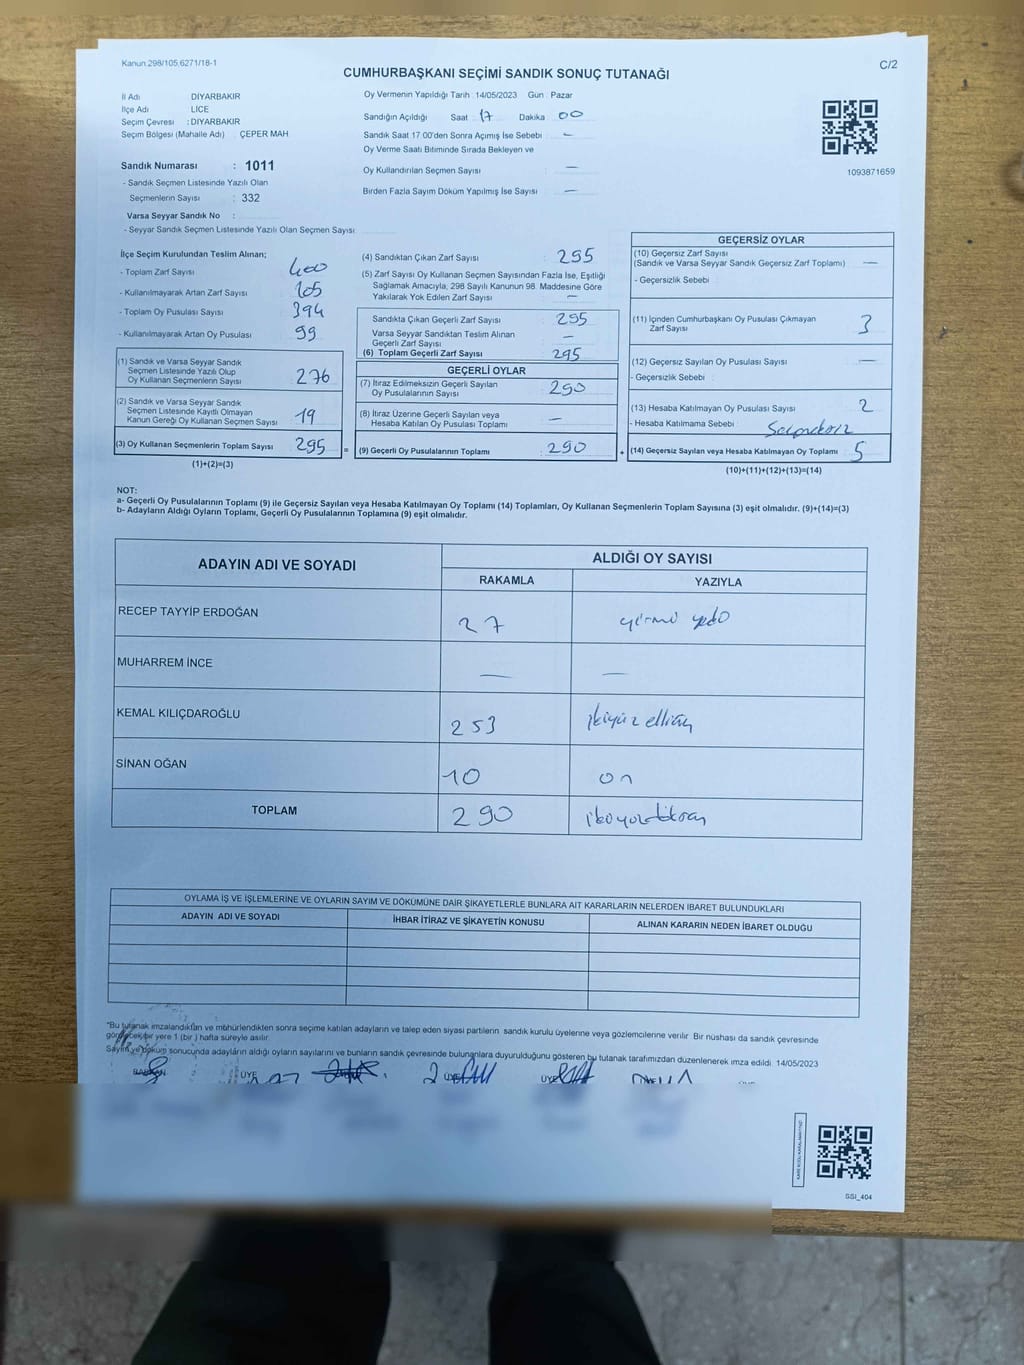 Kanun.298/105,6271/18-1
C/2
CUMHURBAŞKANI SEÇİMİ SANDIK SONUÇ TUTANAĞI
İl Adı DİYARBAKIR
İlçe Adı LİCE
Seçim Çevresi : DİYARBAKIR
Seçim Bölgesi (Mahalle Adı) . ÇEPER MAH
Sandık Numarası : 1011
- Sandık Seçmen Listesinde Yazılı Olan
Seçmenlerin Sayısı : 332
Varsa Seyyar Sandık No :
- Seyyar Sandık Seçmen Listesinde Yazılı Olan Seçmen Sayısı
Oy Vermenin Yapıldığı Tarih : 14/05/2023 Gün : Pazar
Sandığın Açıldığı Saat 17 Dakika 00
Sandık Saat 17.00'den Sonra Açımış İse Sebebi : —
Oy Verme Saati Bitiminde Sırada Bekleyen ve
Oy Kullandırılan Seçmen Sayısı —
Birden Fazla Sayım Döküm Yapılmış İse Sayısı —
1093871659
İlçe Seçim Kurulundan Teslim Alınan;
- Toplam Zarf Sayısı 400
- Kullanılmayarak Artan Zarf Sayısı 105
- Toplam Oy Pusulası Sayısı 394
- Kullanılmayarak Artan Oy Pusulası 99
(1) Sandık ve Varsa Seyyar Sandık
Seçmen Listesinde Yazılı Olup
Oy Kullanan Seçmenlerin Sayısı 276
(2) Sandık ve Varsa Seyyar Sandık
Seçmen Listesinde Kayıtlı Olmayan
Kanun Gereği Oy Kullanan Seçmen Sayısı 19
(3) Oy Kullanan Seçmenlerin Toplam Sayısı 295 =
(1)+(2)=(3)
(4) Sandıktan Çıkan Zarf Sayısı 295
(5) Zarf Sayısı Oy Kullanan Seçmen Sayısından Fazla İse, Eşitliği
Sağlamak Amacıyla, 298 Sayılı Kanunun 98. Maddesine Göre
Yakılarak Yok Edilen Zarf Sayısı —
Sandıkta Çıkan Geçerli Zarf Sayısı 295
Varsa Seyyar Sandıktan Teslim Alınan
Geçerli Zarf Sayısı —
(6) Toplam Geçerli Zarf Sayısı 295
GEÇERLİ OYLAR
(7) İtiraz Edilmeksizin Geçerli Sayılan
Oy Pusulalarının Sayısı 290
(8) İtiraz Üzerine Geçerli Sayılan veya
Hesaba Katılan Oy Pusulası Toplamı —
(9) Geçerli Oy Pusulalarının Toplamı 290 +
GEÇERSİZ OYLAR
(10) Geçersiz Zarf Sayısı
(Sandık ve Varsa Seyyar Sandık Geçersiz Zarf Toplamı) —
- Geçersizlik Sebebi :
(11) İçinden Cumhurbaşkanı Oy Pusulası Çıkmayan
Zarf Sayısı 3
(12) Geçersiz Sayılan Oy Pusulası Sayısı —
- Geçersizlik Sebebi
(13) Hesaba Katılmayan Oy Pusulası Sayısı 2
- Hesaba Katılmama Sebebi
(14) Geçersiz Sayılan veya Hesaba Katılmayan Oy Toplamı 5
(10)+(11)+(12)+(13)=(14)
NOT:
a- Geçerli Oy Pusulalarının Toplamı (9) ile Geçersiz Sayılan veya Hesaba Katılmayan Oy Toplamı (14) Toplamları, Oy Kullanan Seçmenlerin Toplam Sayısına (3) eşit olmalıdır. (9)+(14)=(3)
b- Adayların Aldığı Oyların Toplamı, Geçerli Oy Pusulalarının Toplamına (9) eşit olmalıdır.
ADAYIN ADI VE SOYADI ALDIĞI OY SAYISI
RAKAMLA YAZIYLA
RECEP TAYYİP ERDOĞAN 27 yirmi yedi
MUHARREM İNCE — —
KEMAL KILIÇDAROĞLU 253 ikiyüz elliüç
SİNAN OĞAN 10 on
TOPLAM 290 ikiyüzdoksan
OYLAMA İŞ VE İŞLEMLERİNE VE OYLARIN SAYIM VE DÖKÜMÜNE DAİR ŞİKAYETLERLE BUNLARA AİT KARARLARIN NELERDEN İBARET BULUNDUKLARI
ADAYIN ADI VE SOYADI İHBAR İTİRAZ VE ŞİKAYETİN KONUSU ALINAN KARARIN NEDEN İBARET OLDUĞU
*Bu tutanak imzalandıktan ve mühürlendikten sonra seçime katılan adayların ve talep eden siyasi partilerin sandık kurulu üyelerine veya gözlemcilerine verilir. Bir nüshası da sandık çevresinde
görülecek bir yere 1 (bir ) hafta süreyle asılır.
Sayım ve döküm sonucunda adayların aldığı oyların sayılarını ve bunların sandık çevresinde bulunanlara duyurulduğunu gösteren bu tutanak tarafımızdan düzenlenerek imza edildi. 14/05/2023
BAŞKAN ÜYE ÜYE ÜYE
KARE KODU KARALAMAYINIZ!
SSI_404